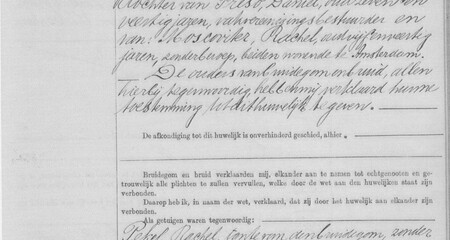 dochter van Preso, Daniel, oud zeven en
veertig jaren, vakvereenigingsbestuurder en
van: Moscoviter, Rachel, oud vijf en veertig
jaren, zonder beroep, beiden wonende te Amsterdam.
De ouders van bruidegom en bruid, allen
hierbij tegenwoordig, hebben mij verklaard hunne
toestemming tot dit huwelijk te geven.
De afkondiging tot dit huwelijk is onverhinderd geschied, alhier
Bruidegom en bruid verklaarden mij, elkander aan te nemen tot echtgenooten en ge-
trouwelijk alle plichten te zullen vervullen, welke door de wet aan den huwelijken staat zijn
verbonden.
Daarop heb ik, in naam der wet, verklaard, dat zij door het huwelijk aan elkander zijn
verbonden.
Als getuigen waren tegenwoordig:
Rachel, tante van den bruidegom, zonder